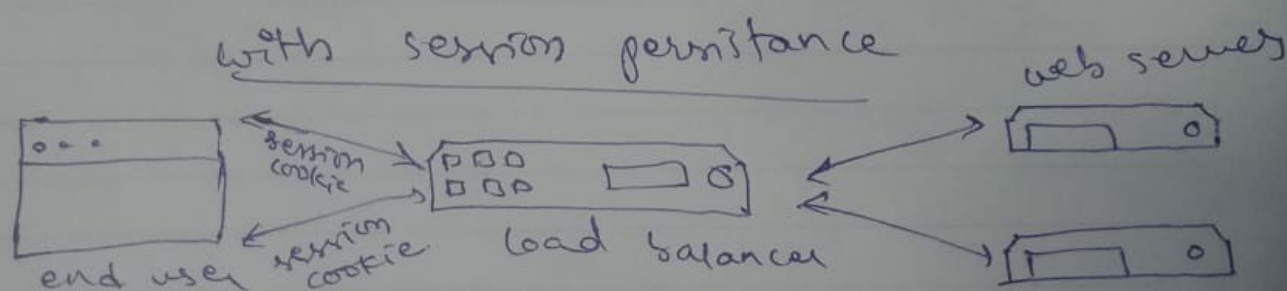 with session persistance
web server
session
cookie
session
cookie
load balancer
end user